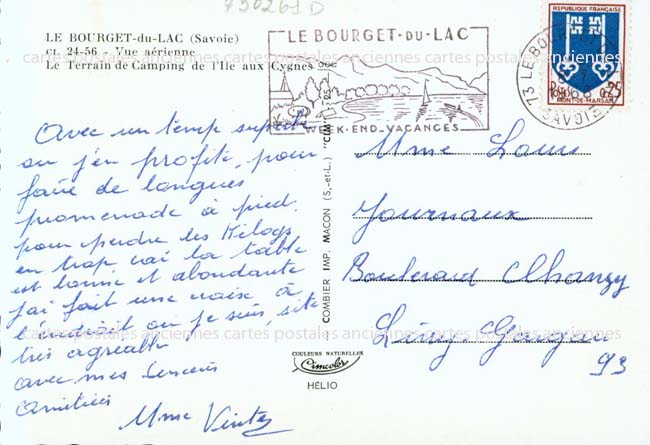 730261 D
LE BOURGET-du-LAC (Savoie)
CL. 24-56 - Vue aérienne
Le Terrain de Camping de l'Ile aux Cygnes
LE BOURGET-DU-LAC
WEEK-END_VACANCES
73 LE BOURGET
SAVOIE
REPUBLIQUE FRANÇAISE
0,25
MONT-DE-MARSAN
Avec un temps superbe
on j'en profite, pour
faire de longues
promenade à pied.
pour perdre les Kilogs
en trop car la table
est bonne et abondante
j'ai fait une croix à
l'endroit ou je suis, site
très agréable
avec mes sincères
amitiées
Mme
COMBIER IMP. MACON (S.-et-L.) "CIM"
COULEURS NATURELLES
Cimcolor
HÉLIO
Mme Louis
Journaux
Boulevard Chanzy
Livry Gargan
93
cartes postales anciennes cartes postales anciennes cartes postales anciennes
cartes postales anciennes cartes postales anciennes cartes postales anciennes